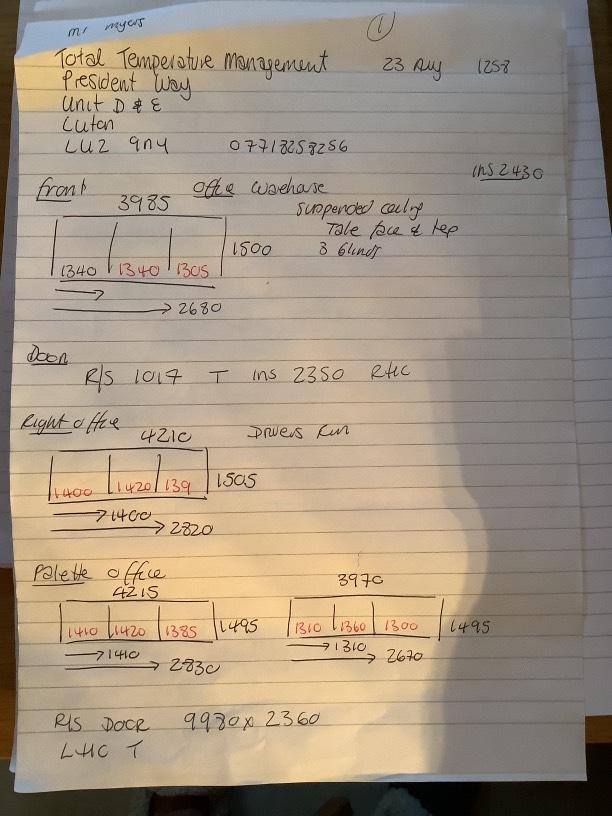 mr myers
1
Total Temperature Management 23 Aug 1258
President Way
Unit D & E
Luton
LU2 9NY 07718258256
ins 2430
Front Office Warehase
3985 suspended ceiling
Take face & tep
1500 3 blinds
1340 1340 1305
2680
Door
R/S 1017 T ins 2350 RHC
Right office
4210 Drivers Run
1400 1420 139 1505
1400
2820
Palette office
4215 3970
1410 1420 1385 1495 1310 1360 1300 1495
1410 1310
2830 2670
R/S DOOR 9980 x 2360
LHC T